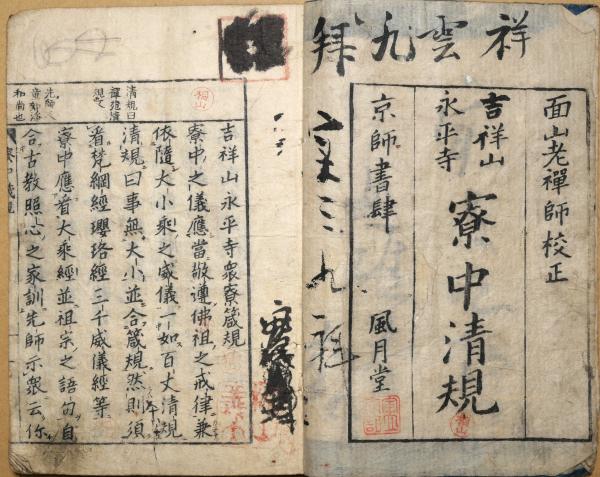 祥雲九拜
面山老禪師校正
吉祥山
永平寺
寮中清規
京師書肆
風月堂
吉祥山永平寺衆寮箴規
寮中之儀應當敬遵佛祖之戒律兼
依隨大小乘之威儀一如百丈清規
清規曰事無大小並合箴規然則須
看梵網經瓔珞經三千威儀經等
寮中應看大乘經並祖宗之語句自
合古教照心之家訓先師示衆云你
清規曰
先師
和尚也